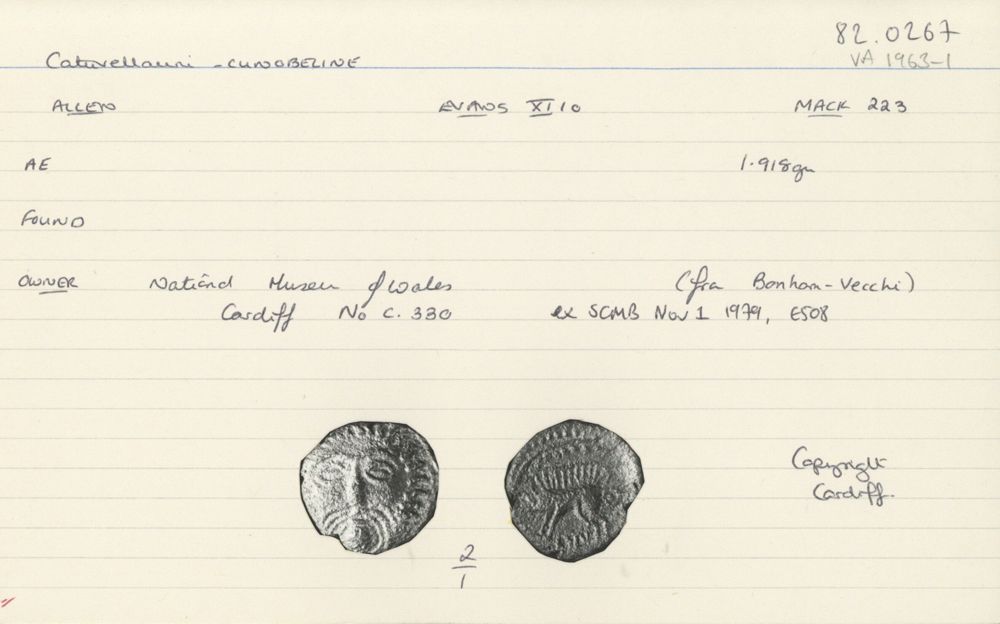 82.0267
Catuvellauni - CUNOBELINE VA 1963-1
ALLEN EVANS XI 10 MACK 223
AE 1.918gm
FOUND
OWNER National Museum of Wales (from Bonham-Vecchi)
Cardiff No C. 330 ex SCMB Nov 1 1979, E508
Copyright
Cardiff.
2
1